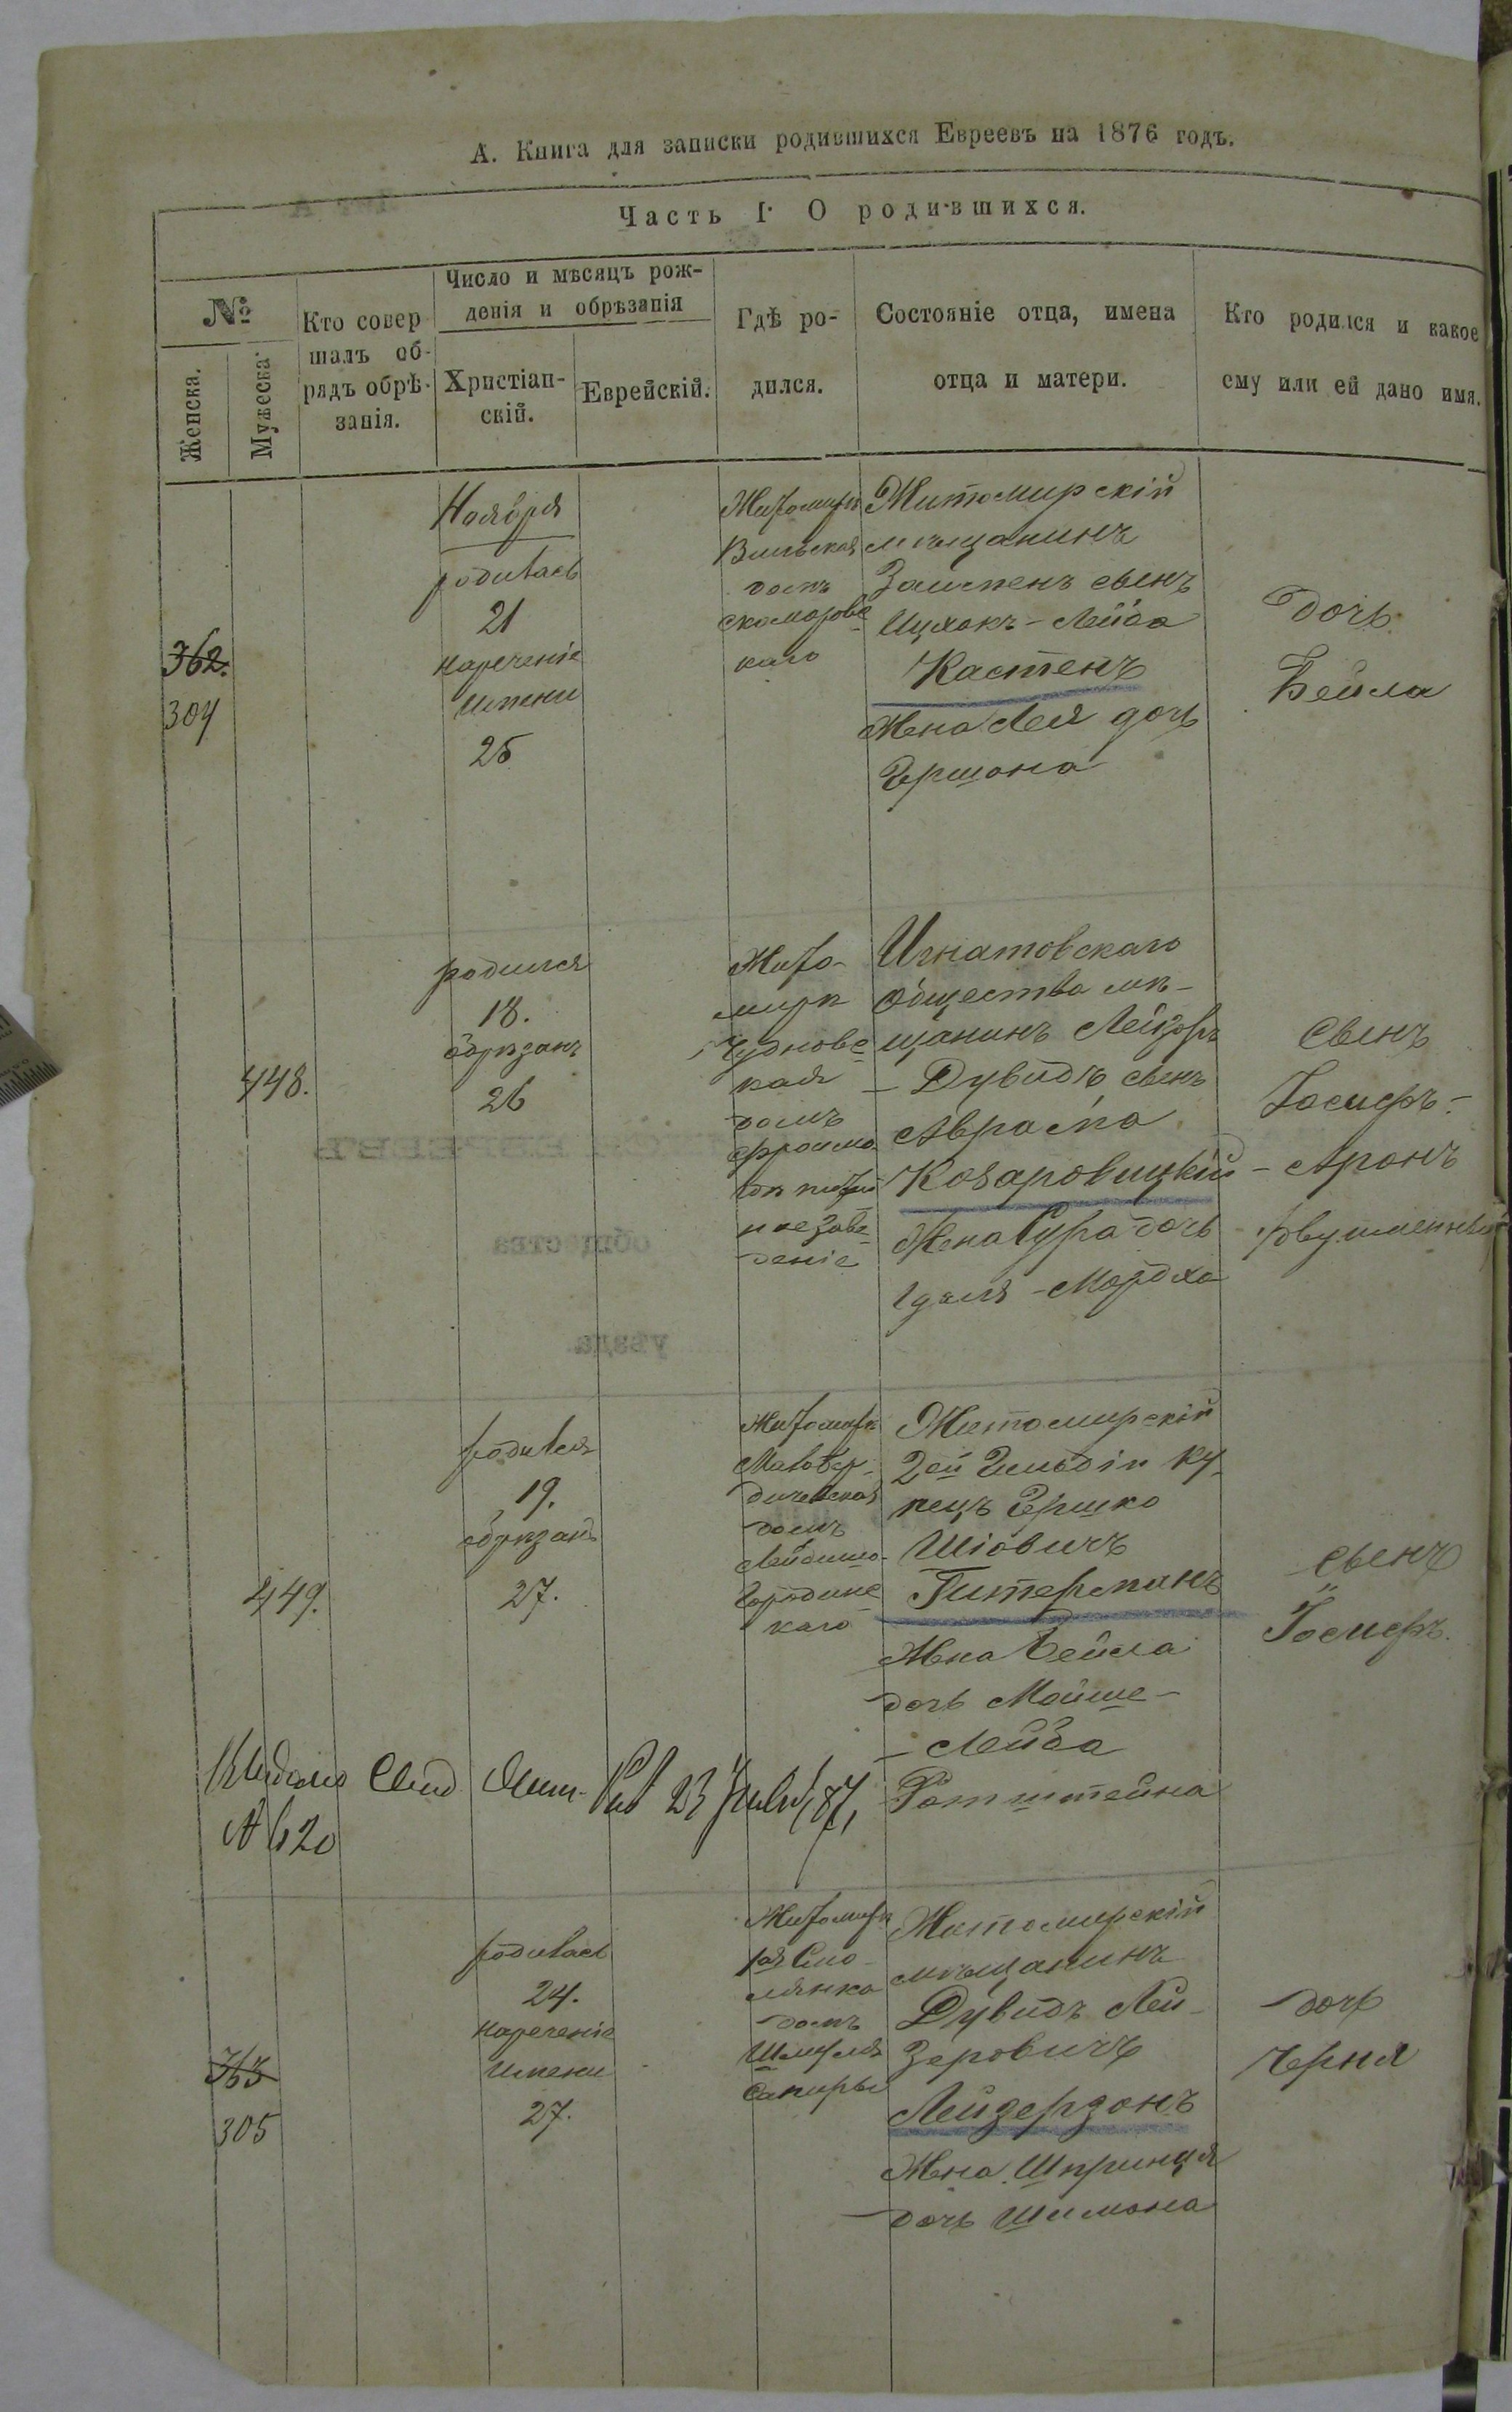 А. Книга для записки родившихся Евреевъ на 1876 годъ.
Часть I. О родившихся.
№
Женска.
Мужеска.
Кто совер
шалъ об-
рядъ обрѣ-
занія.
Число и мѣсяцъ рож-
денія и обрѣзанія
Христіан-
скій.
Еврейскій.
Гдѣ ро-
дился.
Состояніе отца, имена
отца и матери.
Кто родился и какое
ему или ей дано имя.
362.
304
Ноября
родилась
21
нареченіе
имени
25
Житомирѣ
Вильская
домъ
скоморовс
каго
Житомирскій
мѣщанинъ
Залменъ сынъ
Ицхокъ-Лейба
Кастенъ
Жена Лея дочь
Гершона
Дочь
Бейла
448.
родился
18.
обрѣзанъ
26
Жито-
мирѣ
Чудновс
кая
домъ
Фроима
Игнатовскаго
общества мѣ-
щанинъ Лейзоръ
-Дувидъ сынъ
Аврама
Козаровицкій
Жена Сура дочь
Идаля-Мордха
Сынъ
Іосифъ-
-Аронъ
двуименный
449.
родился
19.
обрѣзанъ
27.
Житомирѣ
Малобер-
дичевская
домъ
Лейбиша
Городинс
каго
Житомирскій
2ей Гильдіи ку-
пецъ Гершко
Шіовичъ
Гитерманъ
Жена Бейла
дочь Мойше-
-Лейба
Ротштейна
сынъ
Іосифъ.
№ 620
363
305
родилась
24.
нареченіе
имени
27.
Житомирѣ
1ая Смо-
лянка
домъ
Шмуля
Сапиры
Житомирскій
мѣщанинъ
Дувидъ Лей-
зеровичъ
Лейзерзонъ
Жена Шпринця
дочь Шимона
дочь
Черня